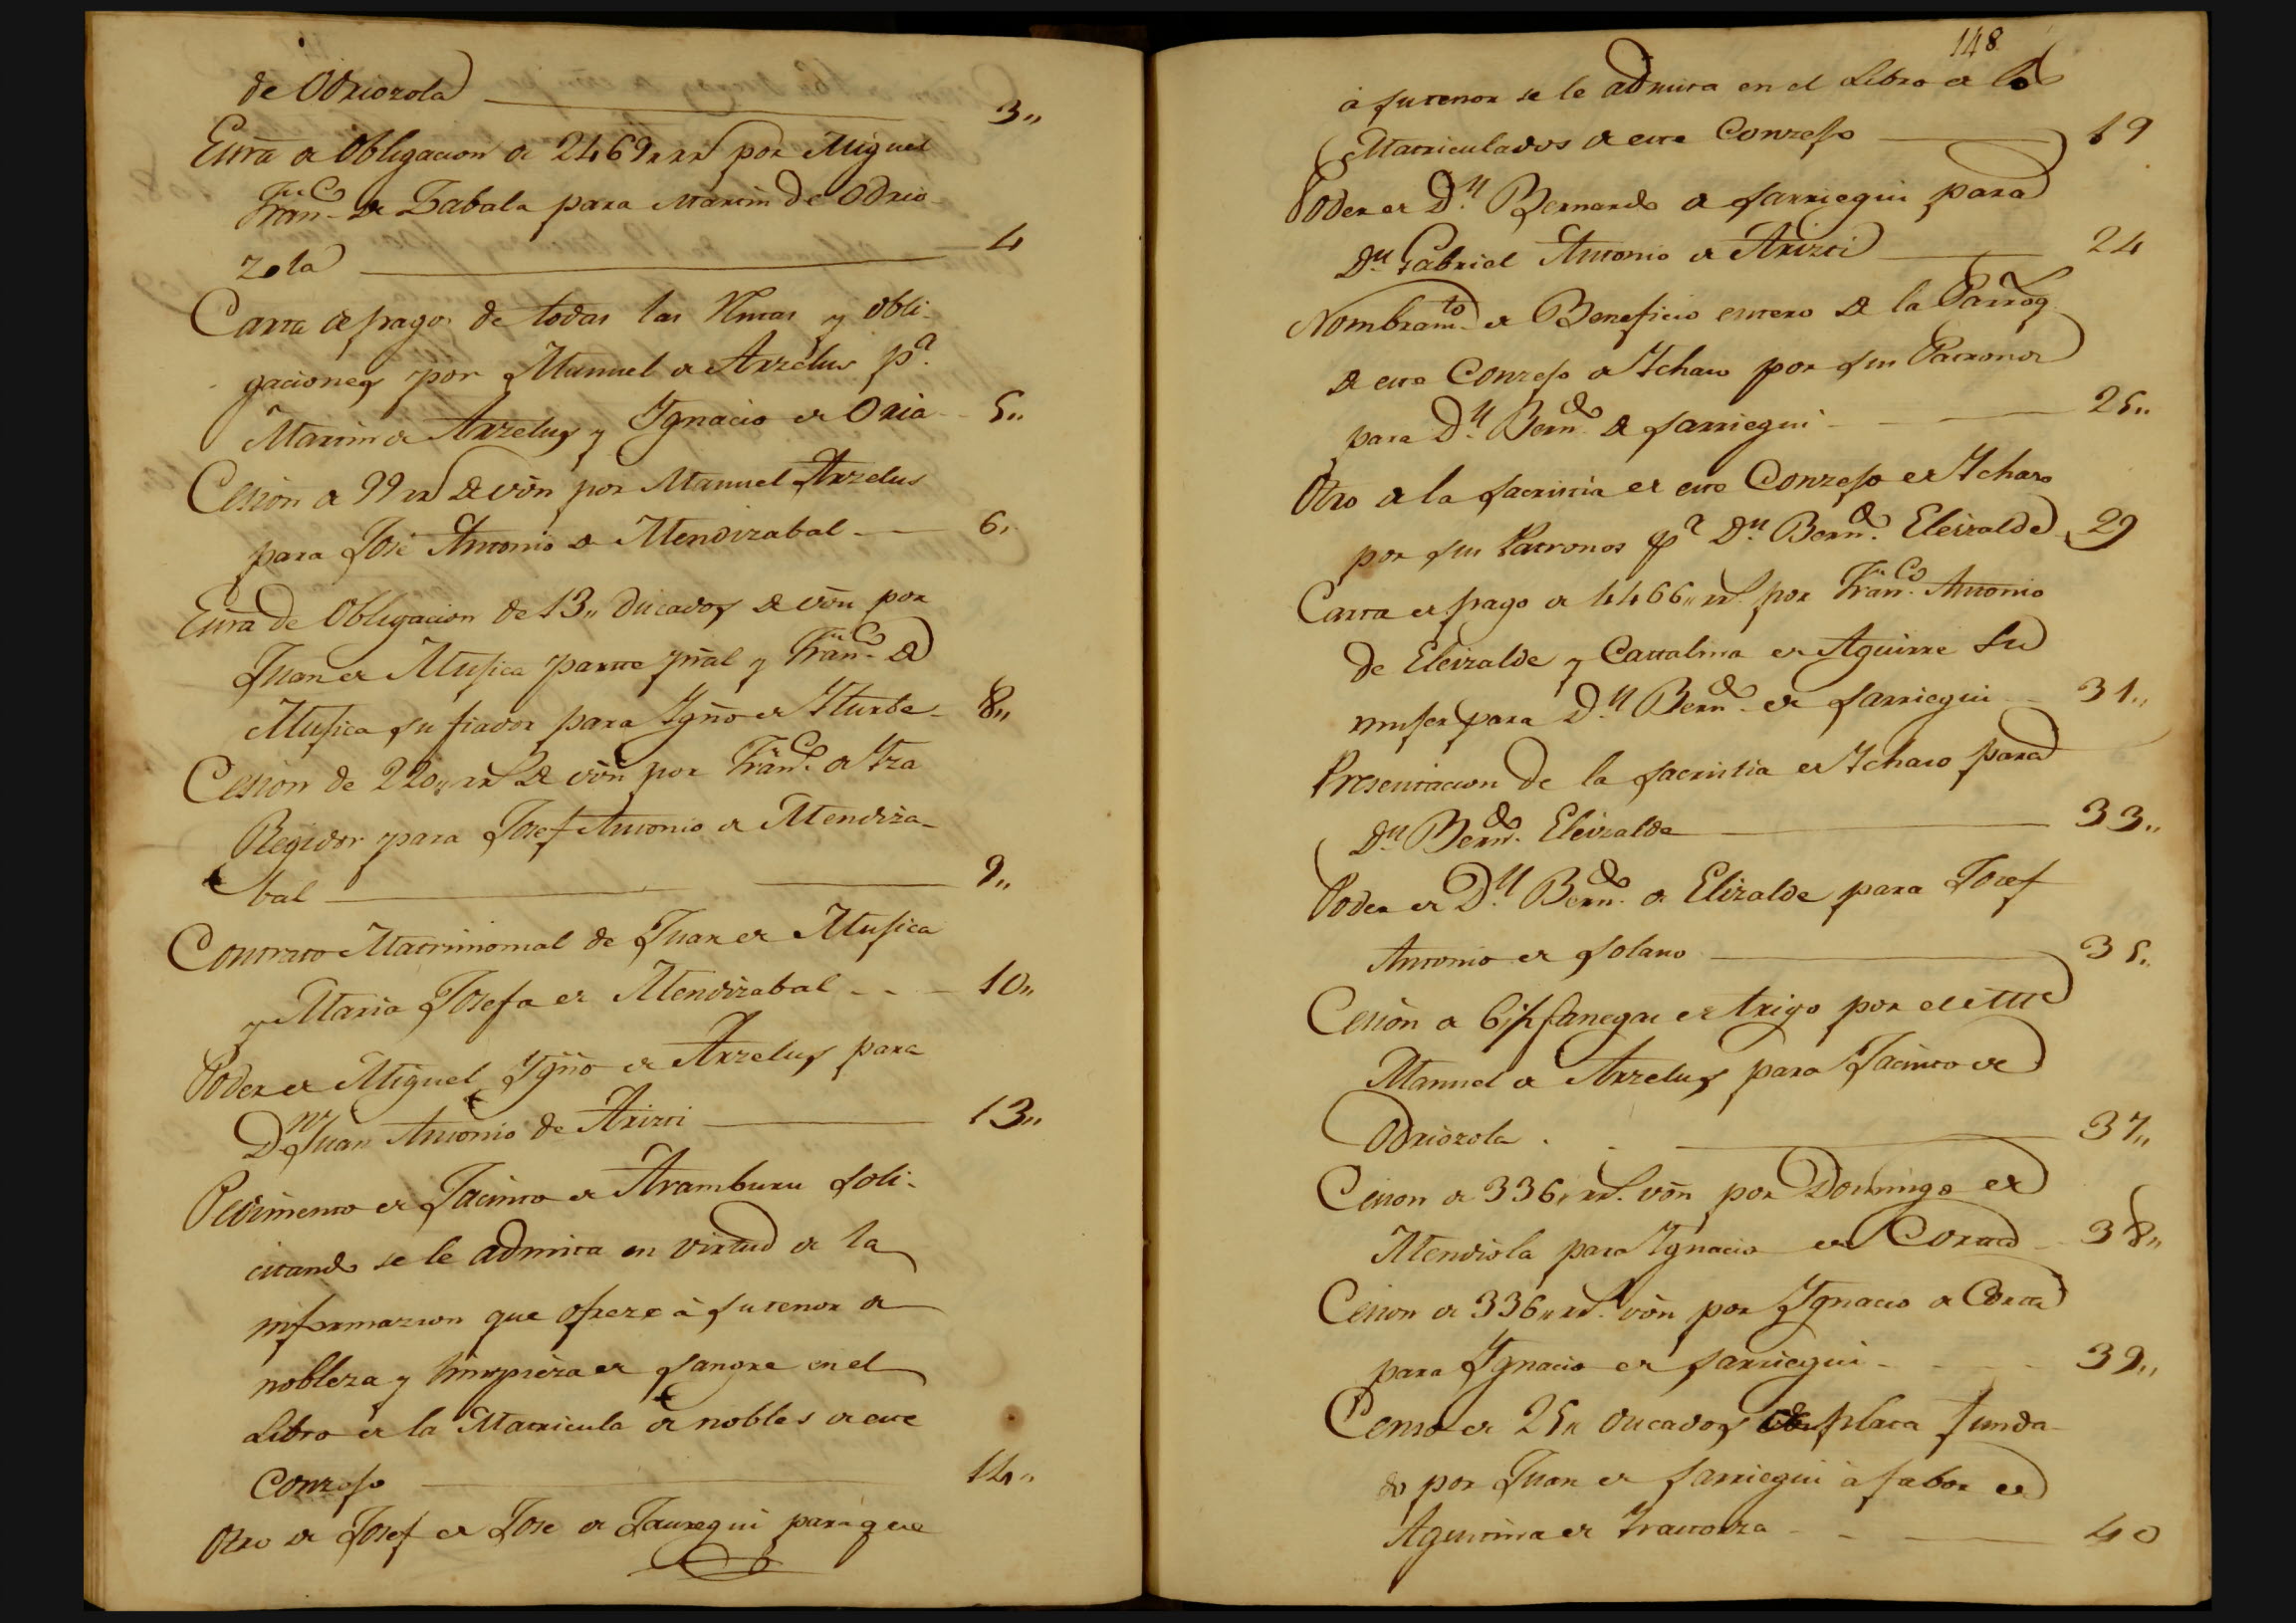 de Odriozola 3,,
Escra de Obligacion de 2469,, rs por Miguel
Franco de Zabala para Martin de Odrio-
zola 4
Carta de pago de todas las Rentas y obli-
gaciones por Manuel de Arzelus pa.
Martin de Arzelus y Ygnacio de Oria 5,,
Cesion de 99 rs de von por Manuel Arzelus
para José Antonio de Mendizabal 6,
Escra de Obligacion de 13,, Ducados de von por
Juan de Musica parte pñal y Franco de
Musica su fiador para Ygño de Yturbe 8,,
Cesion de 220,, rs de von por Franco de
Regidor para Josef Antonio de Mendiza-
bal 9,,
Contrato Matrimonial de Juan de Musica
y Maria Josefa de Mendizabal 10,,
Poder de Miguel Ygño de Arzelus para
Dn Juan Antonio de Arizti 13,,
Pedimento de Jacinto de Aramburu soli-
citando se le admita en virtud de la
informazion que ofreze à su tenor de
nobleza y limpieza de sangre en el
Libro de la Matricula de nobles de este
Conzejo 14,,
Otro de Josef de Jose de Jauregui para que
148
à su tenor se le admita en el Libro de los
Matriculados de este Conzejo 19
Poder de Dn Bernardo de Sarriegui para
Dn Gabriel Antonio de Arizti 24
Nombramto de Beneficio entero de la Parroq
de este Conzejo de Ychaso por sus Patronos
para Dn Berndo de Sarriegui 25,,
Otro de la sacristia de este Conzejo de Ychaso
por sus Patronos pa Dn Berndo Eleizalde 29
Carta de pago de 4466,, rs por Franco Antonio
de Eleizalde y Cattalina de Aguirre Su
mujer para Dn Berndo de Sarriegui 31,,
Presentacion de la sacristia de Ychaso para
Dn Berndo Eleizalde 33,,
Poder de Dn Berndo de Elizalde para Josef
Antonio de Solano 35,
Cesion de fanegas de trigo por
Manuel de Arzelus para Jacinto de
Odriozola 37,,
Cesion de 336,, rs. von por Domingo de
Mendiola para Ygnacio de Corta 38,,
Cesion de 336,, rs. von por Ygnacio de Corta
para Ygnacio de Sarriegui 39,,
Censo de 25,, ducados de plata funda-
do por Juan de Sarriegui à fabor de
Agustina de 40